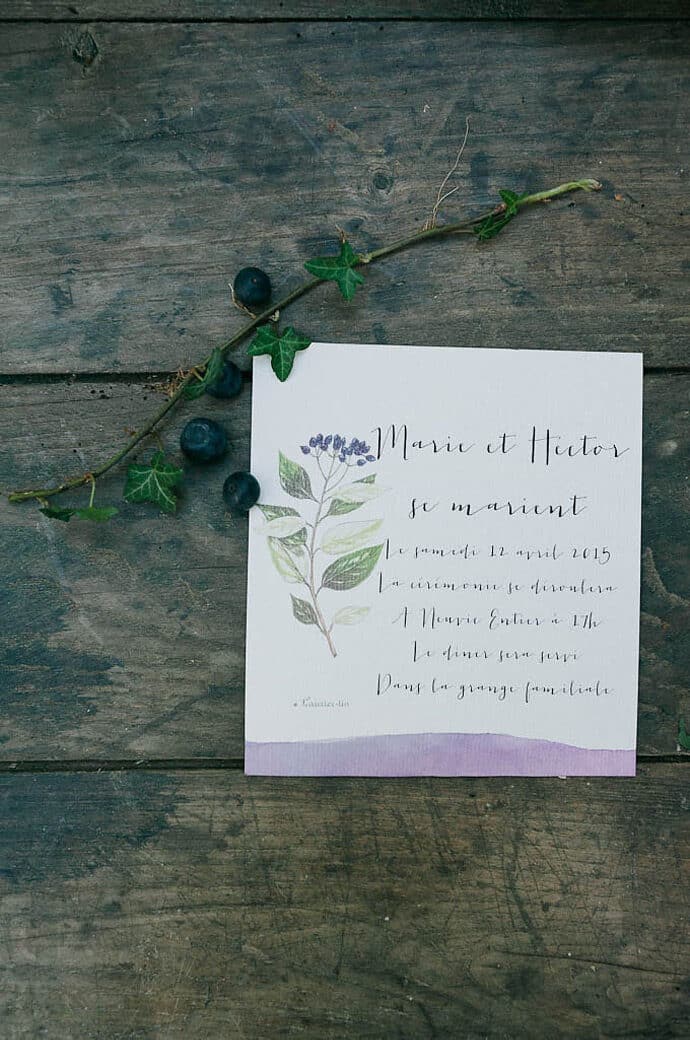 Marie et Hector
se marient
Le samedi 12 avril 2015
La cérémonie se déroulera
A Neuvie Entier à 17h
Le dîner sera servi
Dans la grange familiale